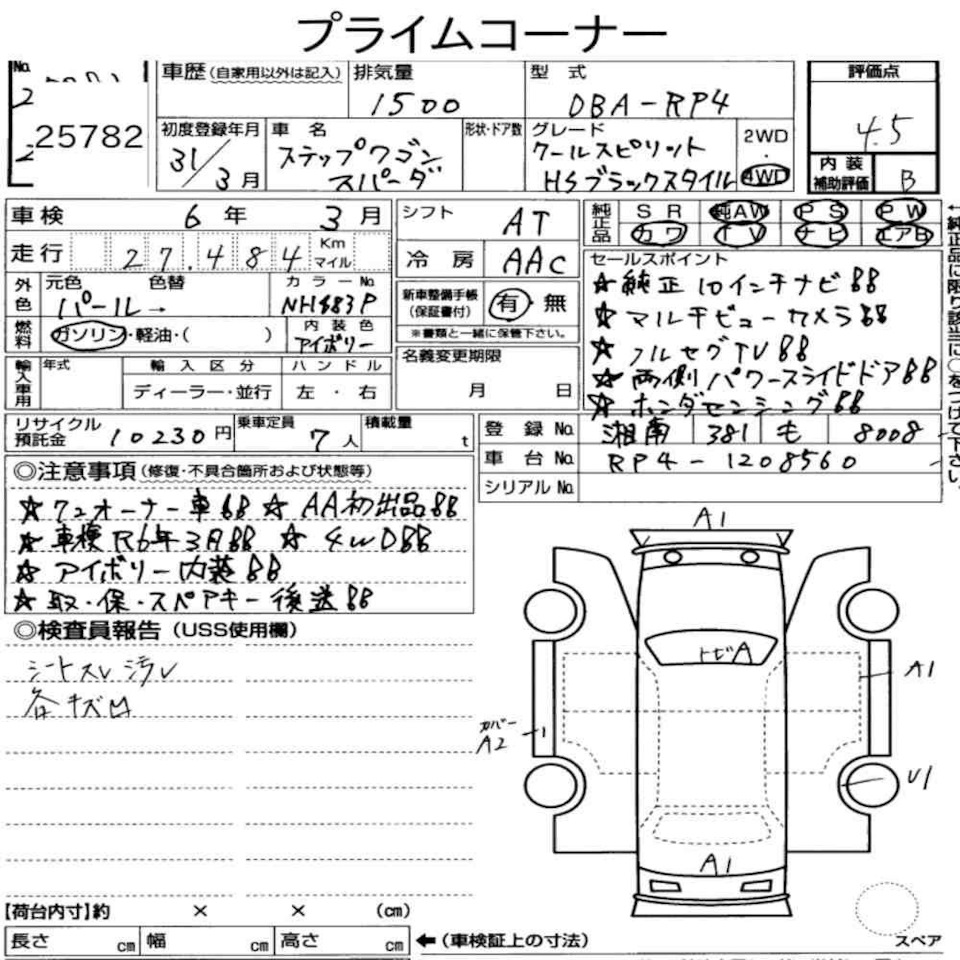 プライムコーナー
No.
25782
車歴（自家用以外は記入） 排気量 型 式 評価点
1500 DBA-RP4 4.5
初度登録年月 車 名 形状・ドア数 グレード 2WD
31/3月 ステップワゴン スパーダ クールスピリット HSブラックスタイル ・ 4WD
内 装 補助評価 B
車検 6年 3月 シフト AT
純正品 SR 純AW PS PW
カワ TV ナビ エアB
走行 27,484 Km マイル 冷 房 AAC
セールスポイント
★純正10インチナビ!!
★マルチビューカメラ!!
★フルセグTV!!
★両側パワースライドドア!!
★ホンダセンシング!!
外色 元色 色替 カラーNo.
パール→ NH883P
新車整備手帳（保証書付） 有・無
※書類と一緒に保管下さい。
燃料 ガソリン・軽油・（ ） 内 装 色 アイボリー
名義変更期限
月 日
輸入車用 年式 輸 入 区 分 ハ ン ド ル
ディーラー・並行 左 ・右
リサイクル預託金 10230円 乗車定員 7人 積載量 t
登 録 No. 湘南 381 も 8008
車 台 No. RP4-1208560
シリアルNo.
←純正品に限り該当に○をつけて下さい。
◎注意事項（修復・不具合箇所および状態等）
★ワンオーナー車!! ★AA初出品!!
★車検R6年3月!! ★4WD!!
★アイボリー内装!!
★取・保・スペアキー後送!!
◎検査員報告（USS使用欄）
シートスレ汚レ
各キズ凹
A1
トビA
A1
カバー
A2
U1
A1
【荷台内寸】約 × × （cm）
長さ cm 幅 cm 高さ cm ←（車検証上の寸法）
スペア